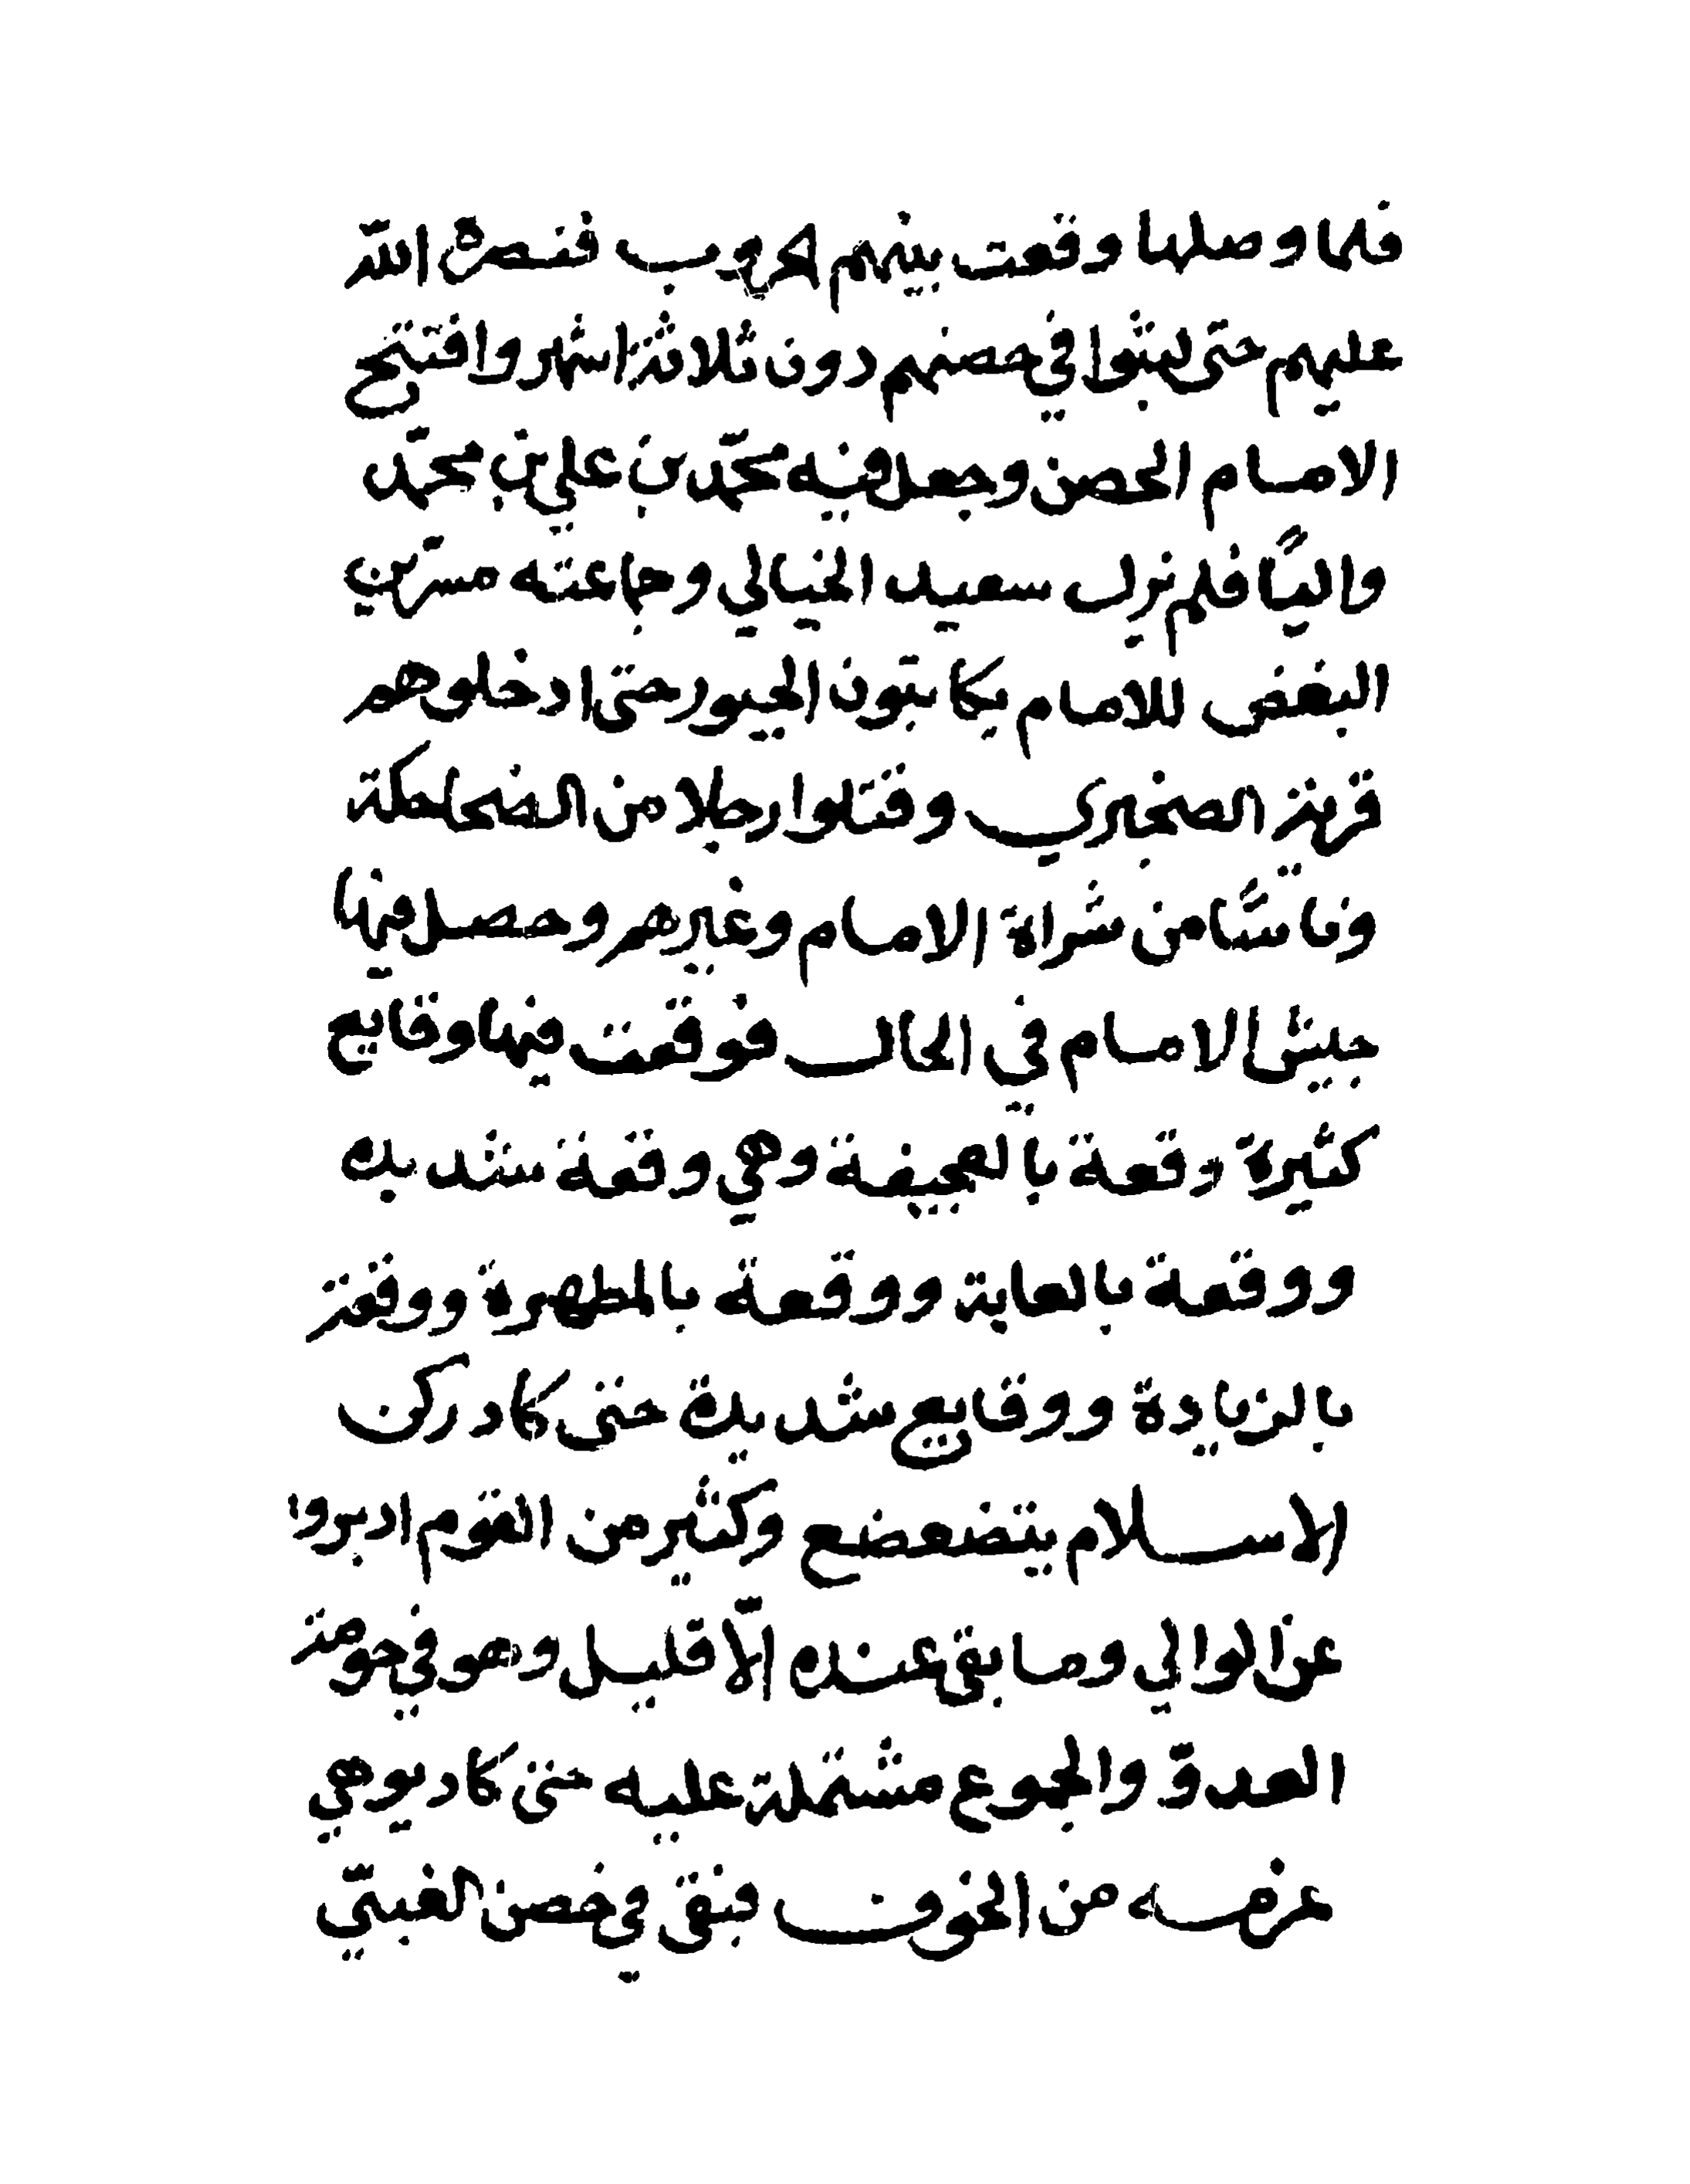 فلما وصلها وقعت بينهم الحروب فنصره الله
عليهم حتى لبثوا في حصنهم دون ثلاثة اشهر وافتتح
الامام الحصن وجعل فيه محمّد بن علي بن محمّد
واليًا فلم نزل سعيد الخيالي وجماعته مسرّين
البغض للامام يكاتبون الجبور حتى ادخلوهم
قرية الصخبري وقتلوا رجلا من الضحاحكة
وناسًا من شراة الامام وغيرهم وحصل فيها
جيش الامام في الحال فوقعت فيها وقايع
كثيرة وقعة بالعجيفة وهي وقعة شديده
ووقعة بالغابة ووقعة بالمطهرة ووقعة
بالزيادة ووقايع شديدة حتى كاد ركن
الاسلام يتضعضع وكثير من القوم ادبروا
عن الوالي وما بقي عنده الّا قليل وهو في حومة
العدوّ والجموع مشتملة عليه حتى كاد يوهي
عزمه من الخوف فبقى في حصن لغبيّ